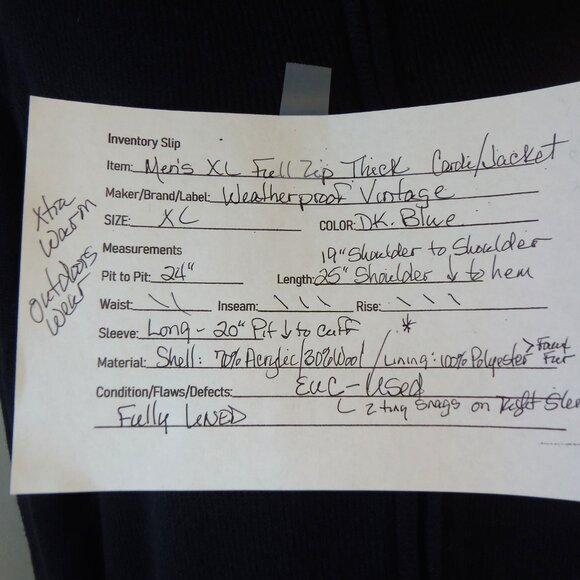 Inventory Slip
Item: Men's XL Full Zip Thick Cardi/Jacket
Maker/Brand/Label: Weatherproof Vintage
SIZE: XL COLOR: DK. Blue
Measurements 19" Shoulder to Shoulder
Pit to Pit: 24" Length: 25" Shoulder ↓ to hem
Waist: \ \ Inseam: \ \ \ Rise: \ \ \
Sleeve: Long - 20" Pit ↓ to cuff *
Material: Shell: 70% Acrylic/30% Wool / Lining: 100% Polyester > Faux Fur
Condition/Flaws/Defects: EUC - Used
Fully LINED 2 tiny snags on Right Slee
Xtra
Warm
Outdoors
Wear